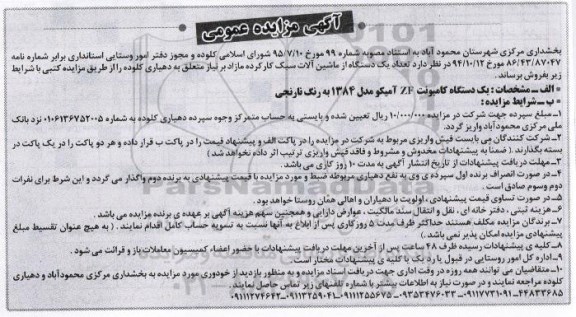 آگهی مزایده عمومی
بخشداری مرکزی شهرستان محمود آباد به استناد مصوبه شماره ۹۹ مورخ ۹۵/۷/۱۰ شورای اسلامی کلوده و مجوز دفتر امور روستایی استانداری برابر شماره نامه
۸۶/۴۳/۸۷۰۴۷ مورخ ۹۴/۱۰/۱۲ در نظر دارد تعداد یک دستگاه از ماشین آلات سبک کار کرده مازاد بر نیاز متعلق به دهیاری کلوده را از طریق مزایده کتبی با شرایط
زیر بفروش برساند.
الف - مشخصات: یک دستگاه کامیونت ۶٫۴ آمیکو مدل ۱۳۸۴ به رنگ نارنجی
ب - شرایط مزایده:
۱- مبلغ سپرده جهت شرکت در مزایده ۱۰/۰۰۰/۰۰۰ ریال تعیین شده و بایستی به حساب متمرکز وجوه سپرده دهیاری کلوده به شماره ۰۱۰۶۱۳۶۷۵۲۰۰۵ نزد بانک
ملی مرکزی محمودآباد واریز گردد.
۲- شرکت کنندگان می بایست فیش واریزی مربوط به شرکت در مزایده را در پاکت الف و پیشنهاد قیمت را در پاکت ب قرار داده و هر دو پاکت را در یک پاکت در
بسته بگذارند. (ضمناً به پیشنهادات مخدوش و مشروط و فاقد فیش واریزی ترتیب اثر داده نخواهد شد)
۳- مهلت دریافت پیشنهادات از تاریخ انتشار آگهی به مدت ۱۰ روز کاری می باشد.
۴- در صورت انصراف برنده اول سپرده ی وی به نفع دهیاری مربوطه ضبط و مورد مزایده با قیمت پیشنهادی به برنده دوم واگذار می گردد و این شرط برای نفرات
دوم وسوم صادق است.
۵- در صورت تساوی قیمت پیشنهادی، اولویت با دهیاران و اهالی همان روستا خواهد بود.
۶- هزینه ثبتی، دفتر خانه ای، نقل و انتقال سند مالکیت، عوارض دارایی و همچنین سهم هزینه آگهی بر عهده ی برنده مزایده می باشد.
۷- برندگان مزایده مکلف هستند حداکثر ظرف مدت ۵ روز کاری پس از ابلاغ به آنها نسبت به تسویه حساب کامل اقدام نمایند. (به هیچ عنوان تقسیط مبلغ
پیشنهادی مزایده امکان پذیر نمی باشد.)
۸- کلیه ی پیشنهادات رسیده ظرف ۴۸ ساعت پس از آخرین مهلت دریافت پیشنهادات با حضور اعضاء کمیسیون معاملات باز و قرائت می شود.
۹- اداره کل امور روستایی در قبول یا رد یک یا کلیه ی پیشنهادات مختار است.
۱۰- متقاضیان می توانند همه روزه در وقت اداری جهت دریافت اسناد مزایده و به منظور بازدید از خودروی مورد مزایده به بخشداری مرکزی محمودآباد و دهیاری
کلوده مراجعه نمایند و در صورت نیاز به اطلاعات بیشتر با شماره تلفنهای زیر تماس حاصل نمایند.
۴۴۸۳۳۶۸۵-۰۹۱۱۷۷۳۱۰۹۱-۰۹۳۵۳۴۷۶۰۳۳-۰۹۱۱۱۲۵۵۶۷۵-۰۹۱۱۳۲۵۹۰۴۱-۰۹۱۱۱۲۷۴۶۴۲
ParsNamadData